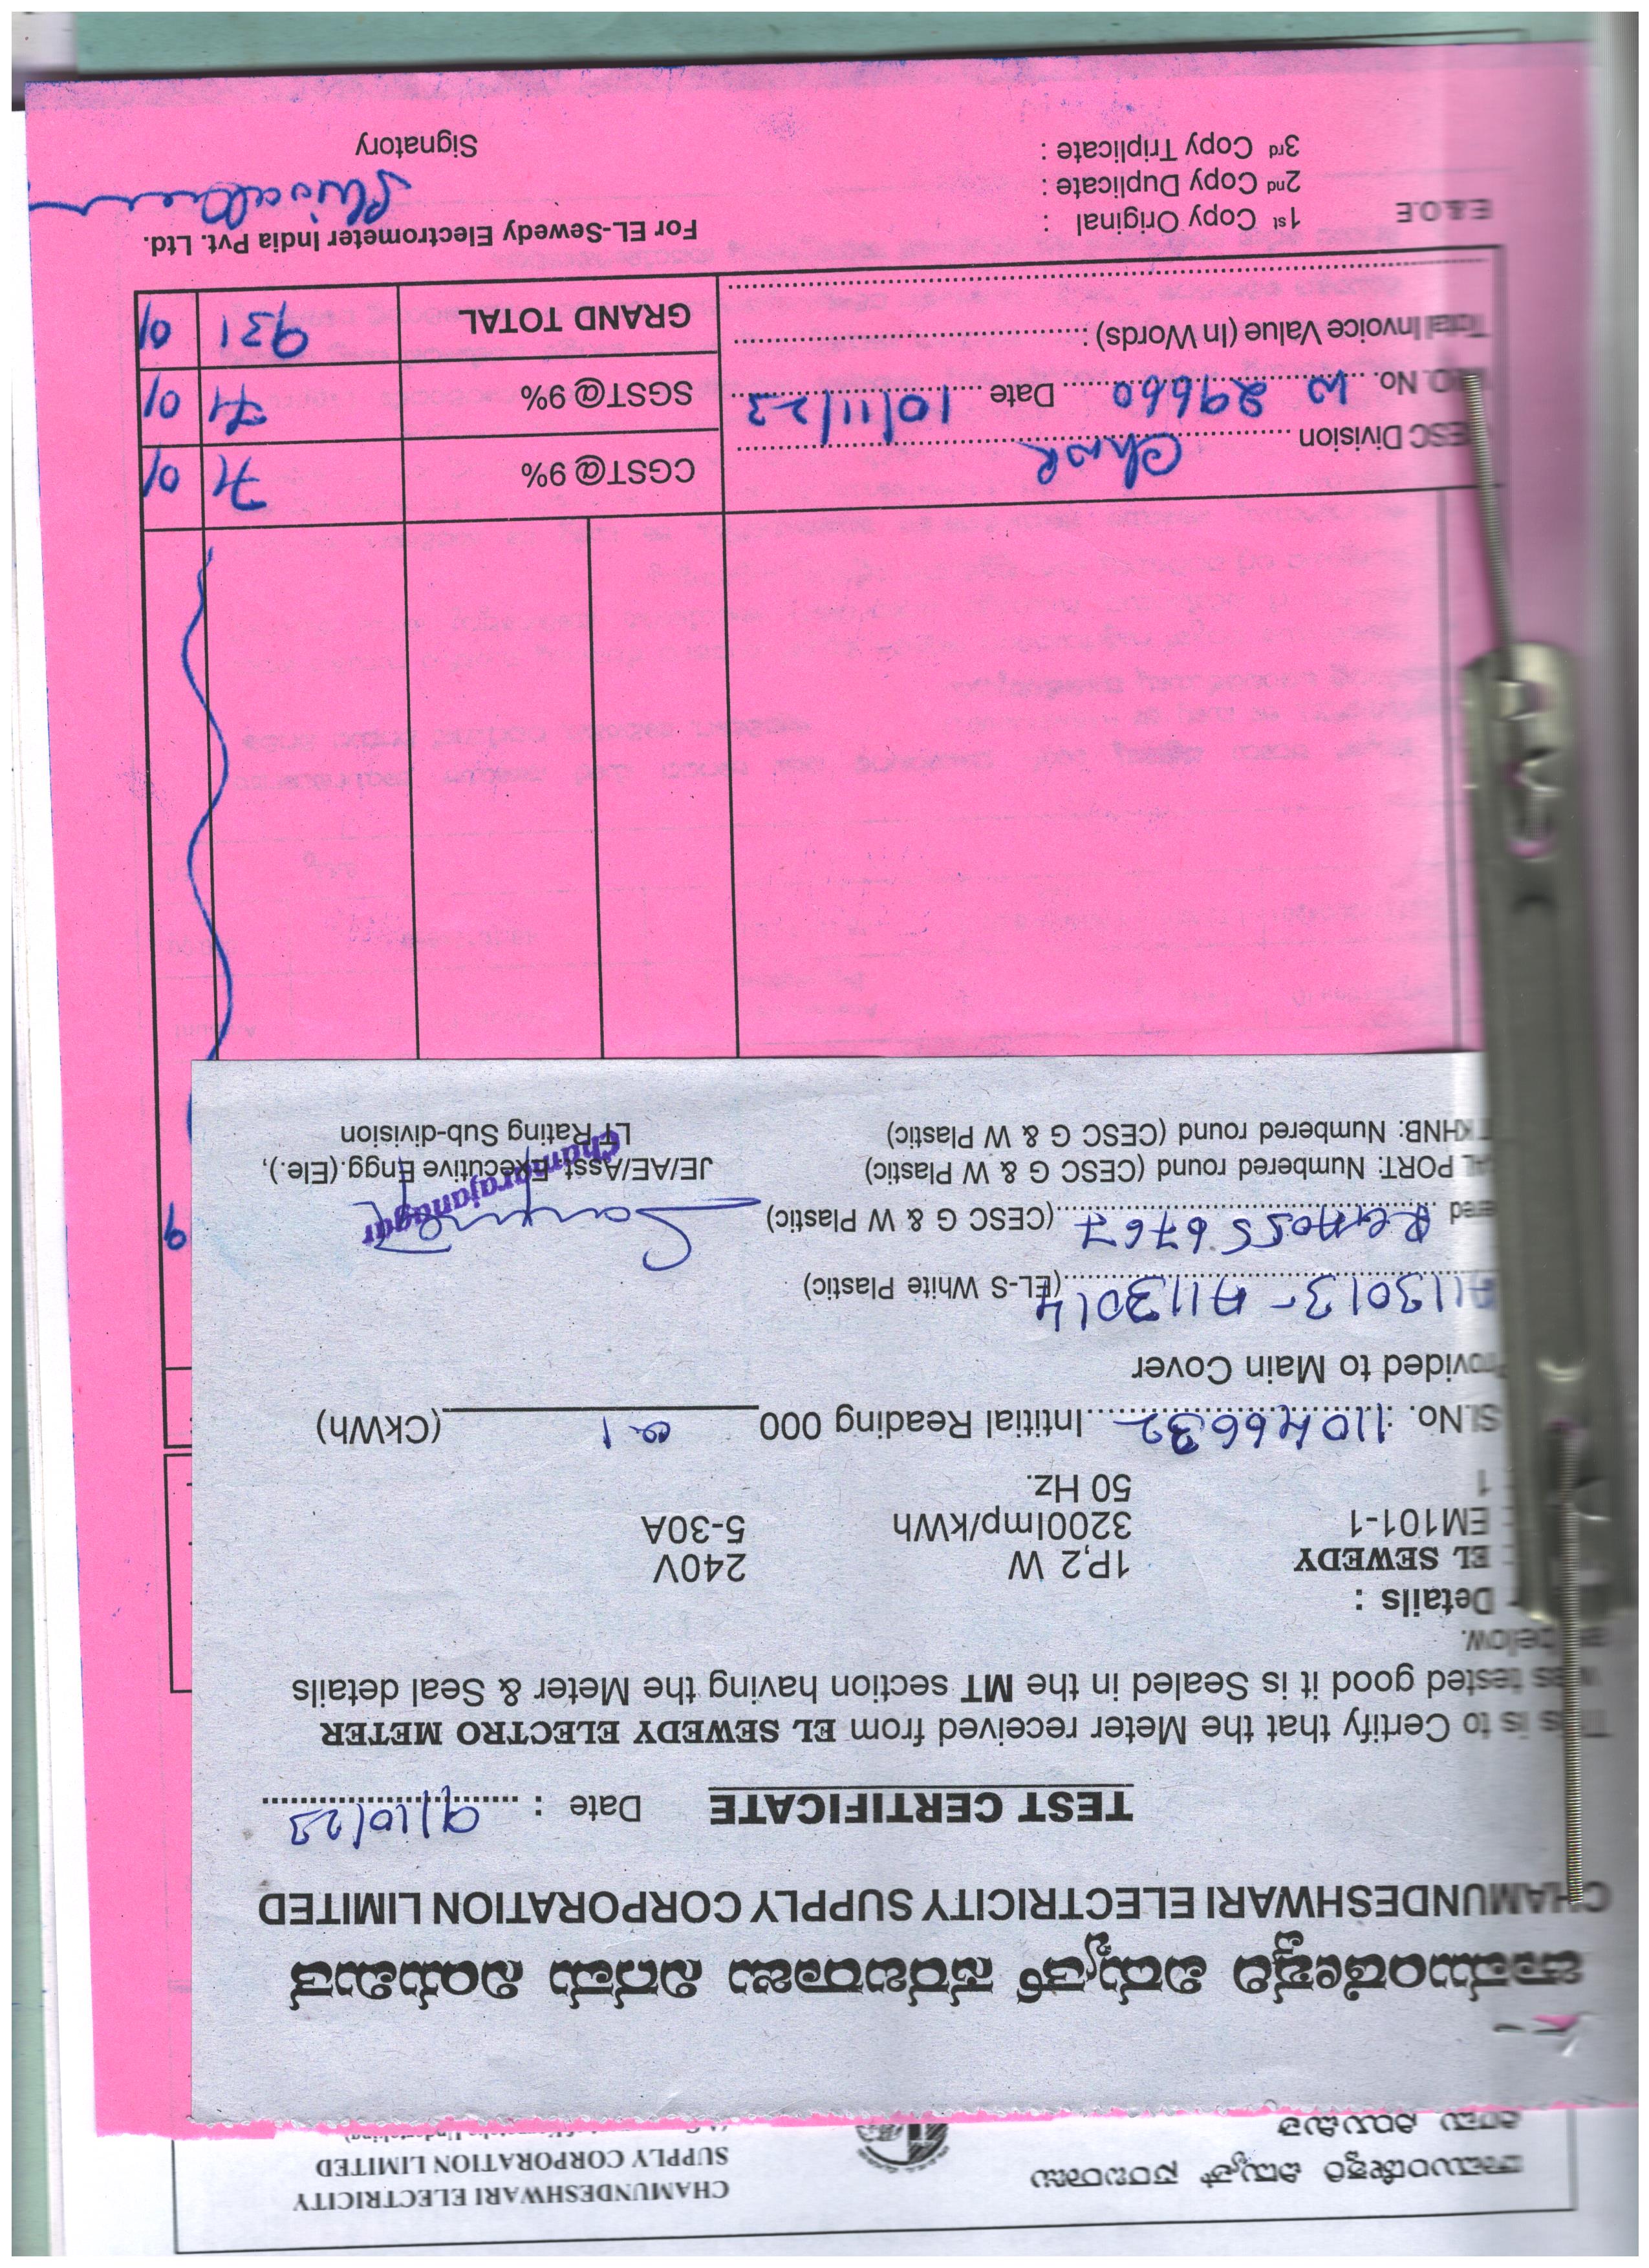 ಚಾಮುಂಡೇಶ್ವರಿ ವಿದ್ಯುತ್ ಸರಬರಾಜು
ನಿಗಮ ನಿಯಮಿತ
CHAMUNDESHWARI ELECTRICITY
SUPPLY CORPORATION LIMITED
ಚಾಮುಂಡೇಶ್ವರಿ ವಿದ್ಯುತ್ ಸರಬರಾಜು ನಿಗಮ ನಿಯಮಿತ
CHAMUNDESHWARI ELECTRICITY SUPPLY CORPORATION LIMITED
TEST CERTIFICATE Date : 9/10/23
This is to Certify that the Meter received from EL SEWEDY ELECTRO METER
was tested good it is Sealed in the MT section having the Meter & Seal details
as below.
Details :
EL SEWEDY 1P,2 W 240V
EM101-1 3200Imp/kWh 5-30A
1 50 Hz.
Sl.No. : 11046632 Intitial Reading 000 01 (CkWh)
Provided to Main Cover
A113013 - A113014 (EL-S White Plastic)
(CESC G & W Plastic)
PORT: Numbered round (CESC G & W Plastic)
KHNB: Numbered round (CESC G & W Plastic)
JE/AE/Asst. Executive Engg.(Ele.),
LT Rating Sub-division
Chamarajanagar
CESC Division
CGST@ 9% 71 0/
No. W 29660 Date 10/11/23
SGST@ 9% 71 0/
Total Invoice Value (In Words) :
GRAND TOTAL 931 0/
E.&.O.E
1st Copy Original :
2nd Copy Duplicate :
3rd Copy Triplicate :
For EL-Sewedy Electrometer India Pvt. Ltd.
Signatory